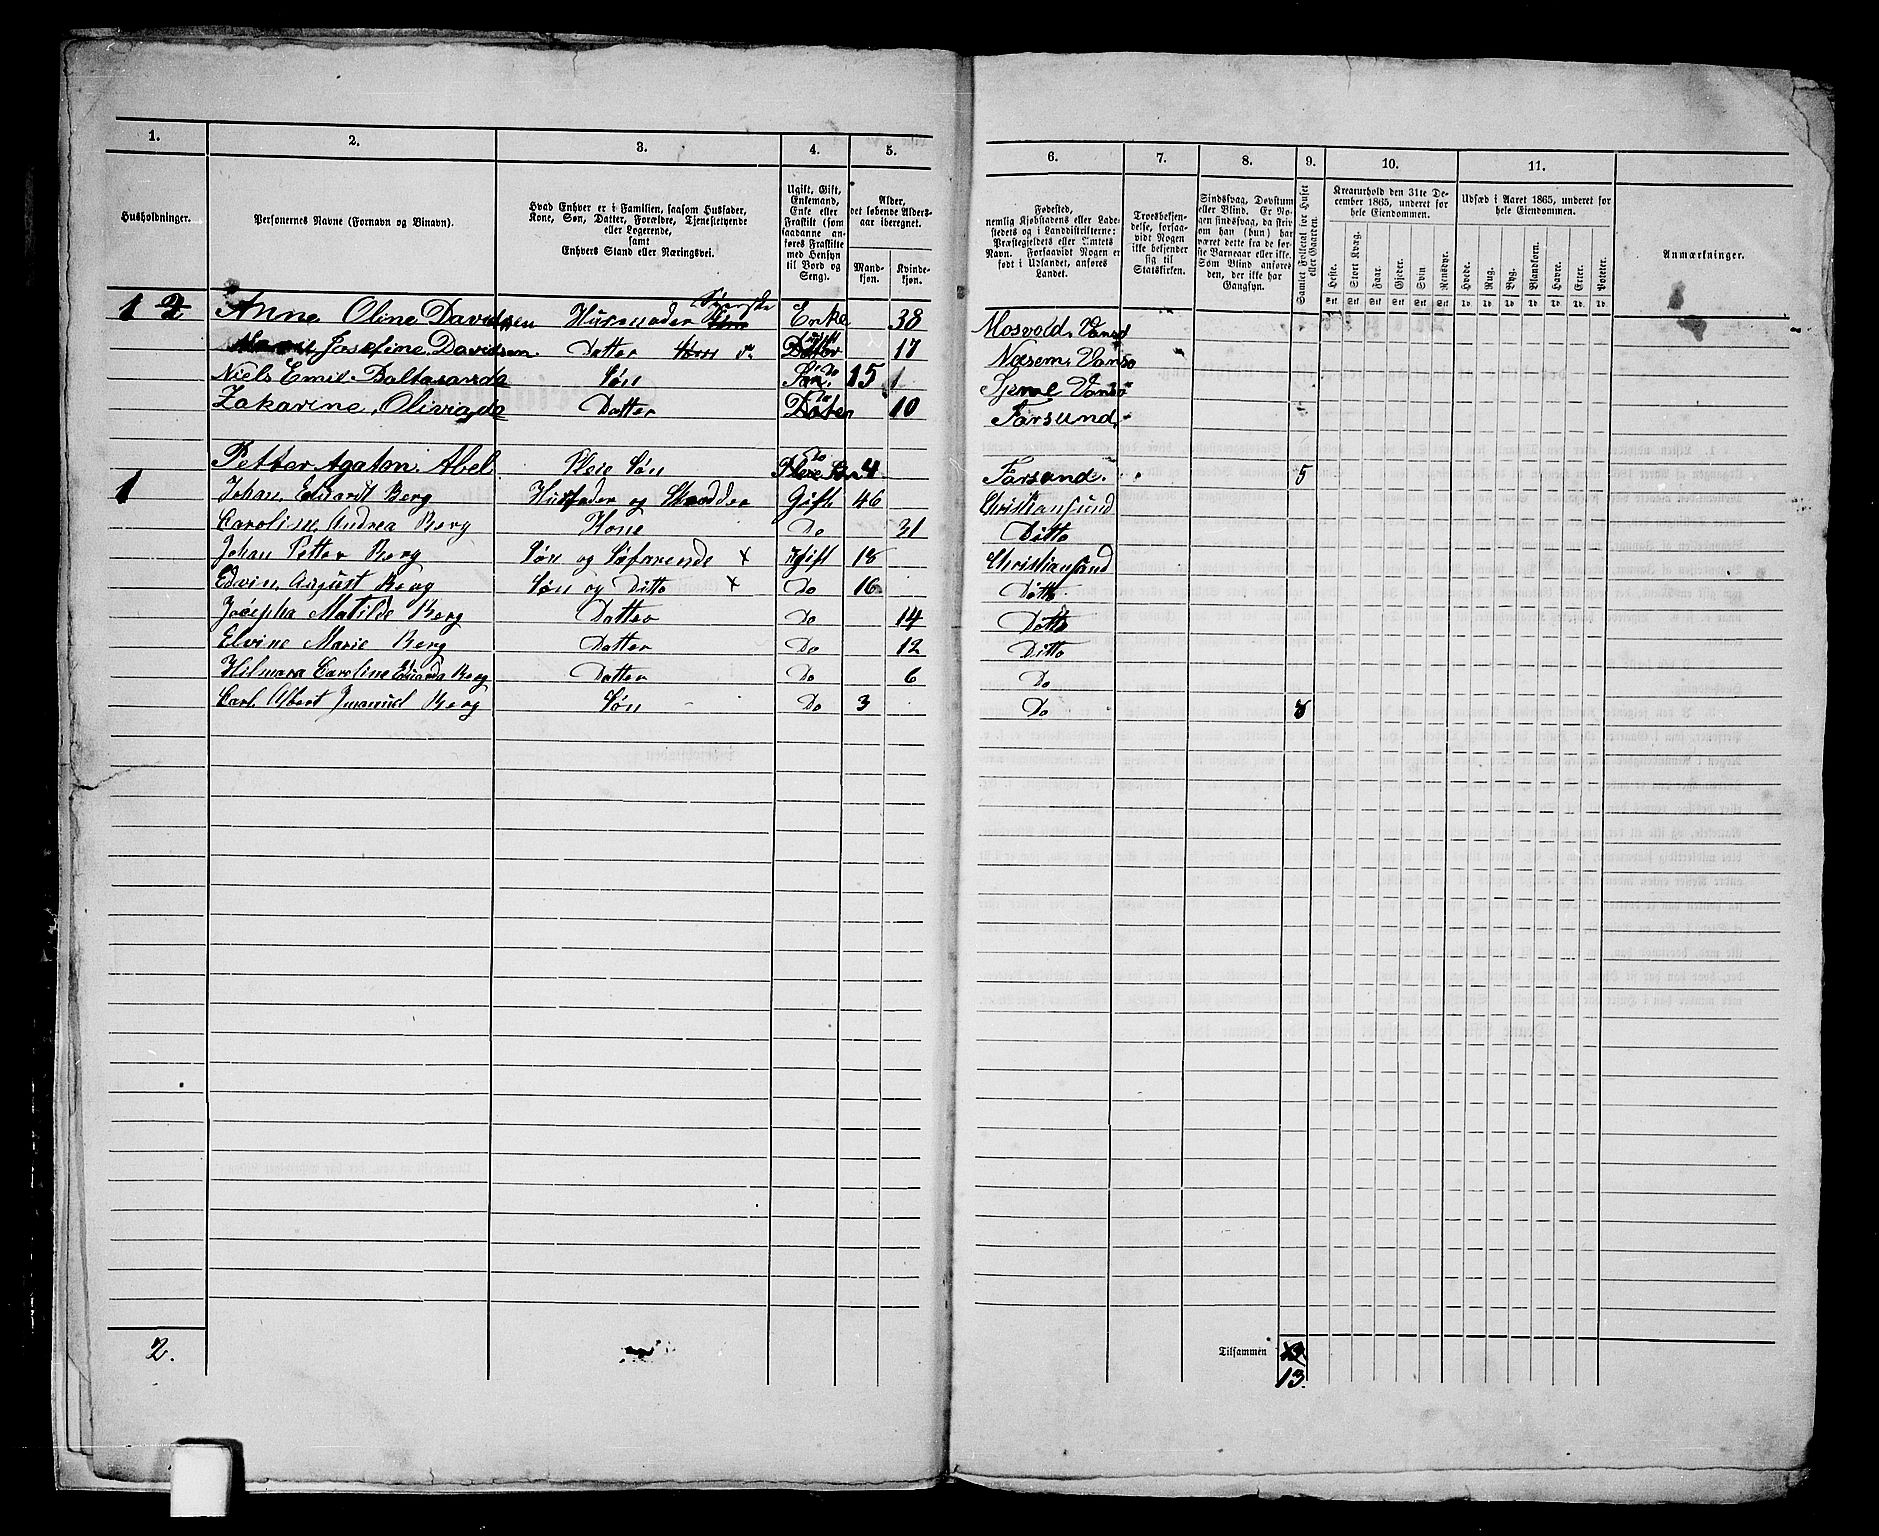 1. 2. 3. 4. 5. 6. 7. 8. 9. 10. 11.
Husholdninger.
Personernes Navne (Fornavn og Binavn).
Hvad Enhver er i Familien, saasom Husfader, Kone, Søn, Datter, Forældre, Tjenestetyende eller Logerende, samt Enhvers Stand eller Næringsvei.
Ugift, Gift, Enkemand, Enke eller Fraskilt (som saadanne anføres Fraskilte med Hensyn til Bord og Seng).
Alder, det løbende Aldersaar iberegnet.
Mandkjøn. Kvindekjøn.
Fødested, nemlig Kjøbstadens eller Ladestedets og i Landdistrikterne: Præstegjeldets eller Amtets Navn. Forsaavidt Nogen er født i Udlandet, anføres Landet.
Troesbekjendelse, forsaavidt Nogen ikke bekjender sig til Statskirken.
Sindssvag, Døvstum eller Blind. Er Nogen sindssvag, da skriv om han (hun) har været dette fra de første Barneaar eller ikke. Som Blind anføres den, der ikke har Gangsyn.
Samlet Folketal i hver Huset eller Gaarden.
Kreaturhold den 31te December 1865, underet for hele Eiendommen.
Heste. Stort Kvæg. Faar. Gjeder. Svin Rensdyr.
Udsæd i Aaret 1865, underet for hele Eiendommen.
Hvede. Rug. Byg. Blandkorn. Havre. Erter. Poteter.
Anmærkninger.
1 2 Anne Oline Davidsen Husmoder Enke 38 Mosvold, Vansø
Josefine Davidsen Datter 17 Næsem, Vansø
Niels Emil Baltasar do Søn 15 Vansø
Zakarine, Olivia do Datter Do 10 Farsund
Petter Agaton Abel Pleie Søn Do 4 Farsund. 5
1 Johan Eduardt Berg Husfader og Skrædder Gift 46 Christiansund
Caroline Andrea Berg Kone Do 31 Ditto
Johan Petter Berg Søn og Søfarende x ugift 18 Christiansund
Edvin August Berg Søn og Ditto x Do 16 Ditto
Josepha Matilde Berg Datter Do 14 Ditto
Elvine Marie Berg Datter Do 12 Ditto
Hilmara Caroline Eduarda Berg Datter Do 6 Do
Carl Albert Imanuel Berg Søn Do 3 Do 8
2. Tilsammen 13.